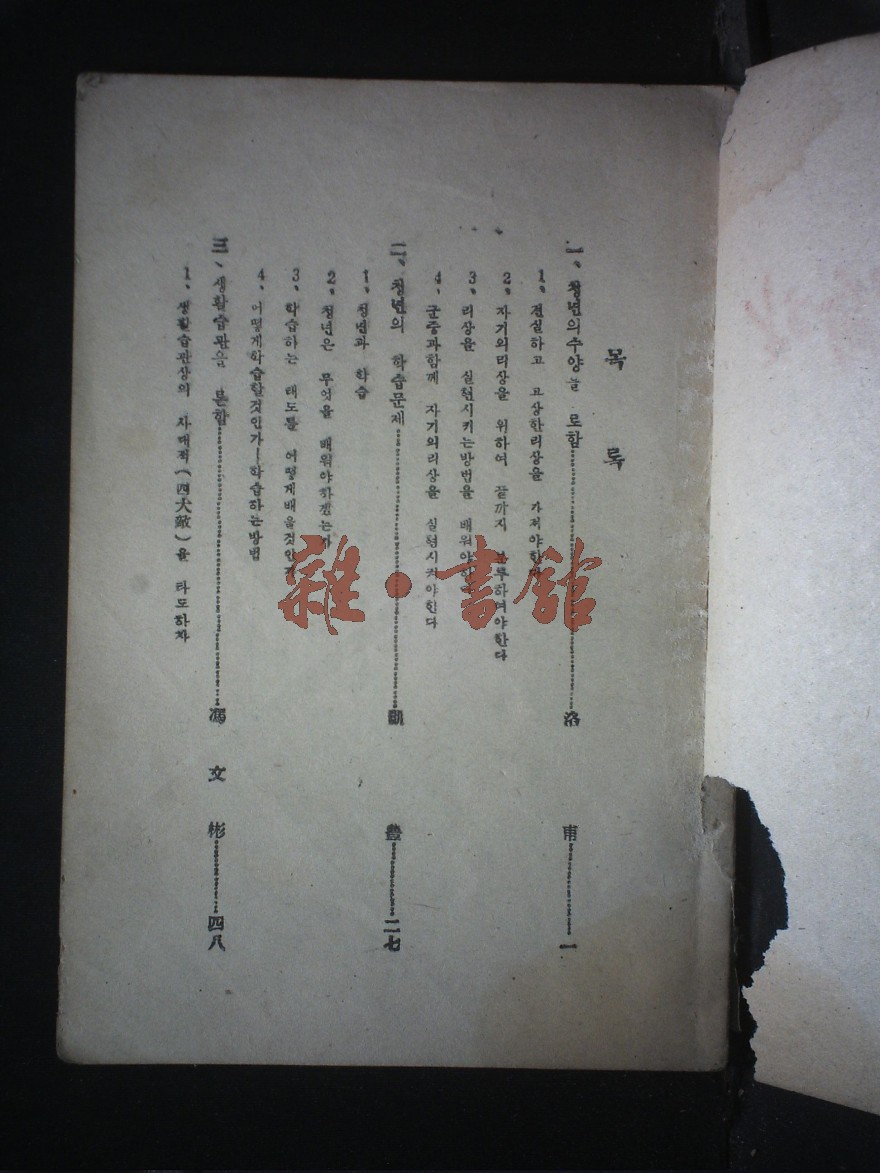 목 록
一、청년의수양을 론함……洛 甫……一
1、진실하고 고상한리상을 가저야한다
2、자기의리상을 위하여 끝까지 분투하여야한다
3、리상을 실현시키는방법을 배워야한다
4、군중과함께 자기의리상을 실현시켜야한다
二、청년의 학습문제……凱 豊……二七
1、청년과 학습
2、청년은 무엇을 배워야하겠는가
3、학습하는 태도를 어떻게배울것인가
4、어떻게학습할것인가—학습하는방법
三、생활습관을 론함……馮 文 彬……四八
1、생활습관상의 사대적(四大敵)을 타도하자
雜·書館